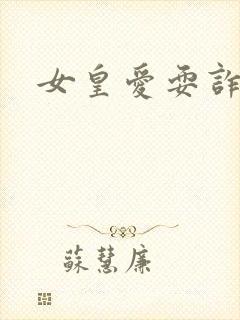 女皇愛耍詐
蘇慧廉